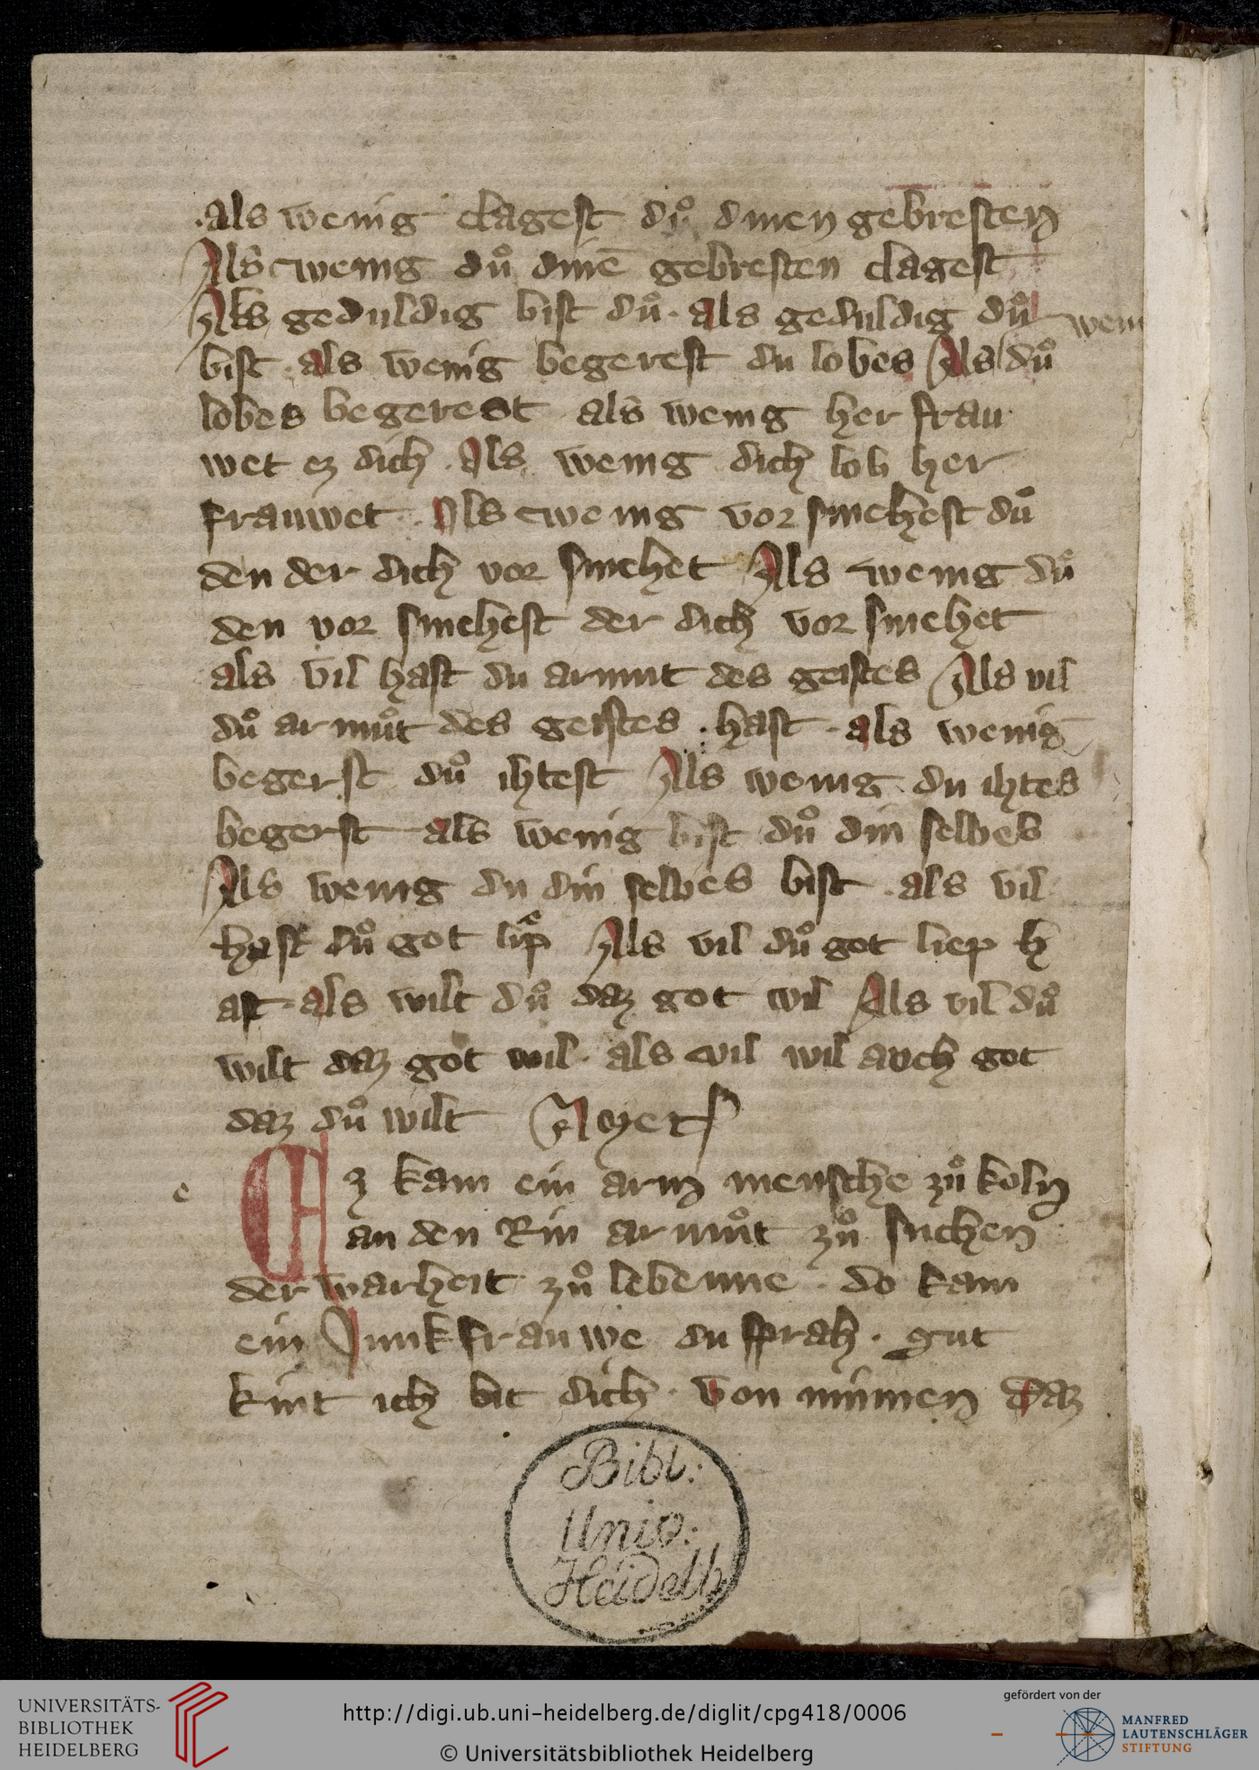 ·als wenig clagest dů dinen gebresten
Als wenig dů dinē gebresten clagest
Als geduldig bist dů · als geduldig dů
bist · als wenig begerest du lobes Als wenig dů
lobes begerest als wenig her frau
wet ez dich · Als wenig dich lob her
frauwet · Als wenig vor smehest dů
den der dich vor smehet Als wenig dů
den vor smehest der dich vor smehet
als vil hast du armut des geistes Als vil
dů armůt des geistes · hast · als wenig
begerst dů ihtest Als wenig du ihtes
begerst als wenig bist dů din selbes
Als wenig du din selbes bist · als vil
hast dů got liͤp Als vil dů got liep h
ast · als wilt dů daz got wil Als vil dů
wilt daz got wil · als vil wil auch got
daz dů wilt Amen
e
Ez kam ein arm mensche zů koln
an den Rin armůt zů suchen
der warheit zů lebenne · do kam
ein Junkfrauwe du sprah · gut
kint ich bit dich · von minnen daz
Bibl:
Univ:
Heidelb
UNIVERSITÄTS-
BIBLIOTHEK
HEIDELBERG
http://digi.ub.uni-heidelberg.de/diglit/cpg418/0006
© Universitätsbibliothek Heidelberg
gefördert von der
MANFRED
LAUTENSCHLÄGER
STIFTUNG